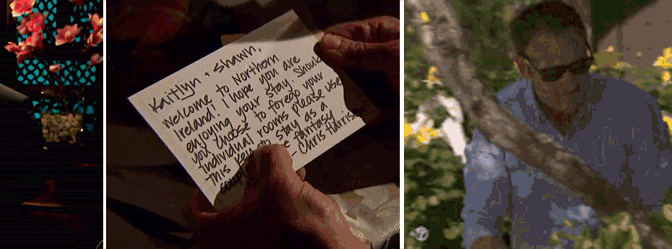 Kaitlyn + Shawn,
Welcome to Northern
Ireland! I hope you are
enjoying your stay. Should
you choose to forego your
individual rooms please use
this key to stay as a
couple fantasy
- Chris Harrison